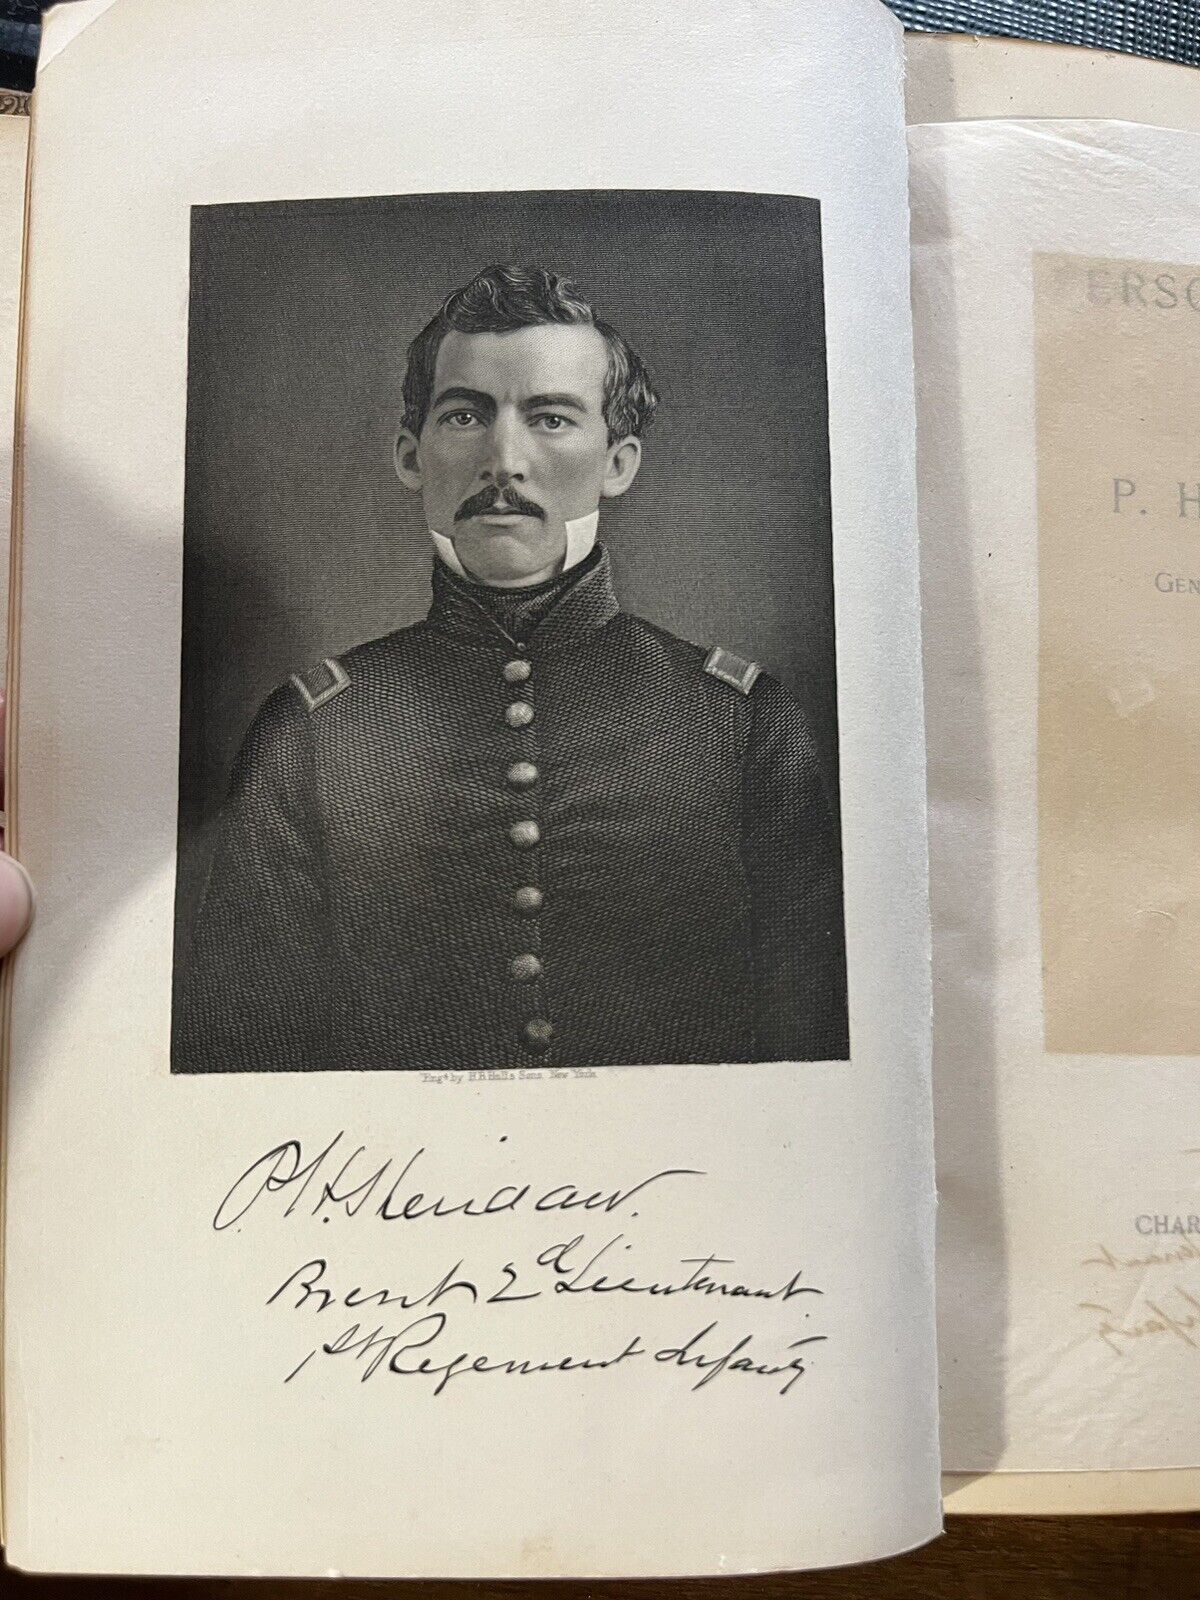 Eng'd by H.B. Hall's Sons New York
P. H. Sheridan.
Brevt 2d Lieutenant
1st Regement Infanty
ERSO
P. H
GEN
CHAR